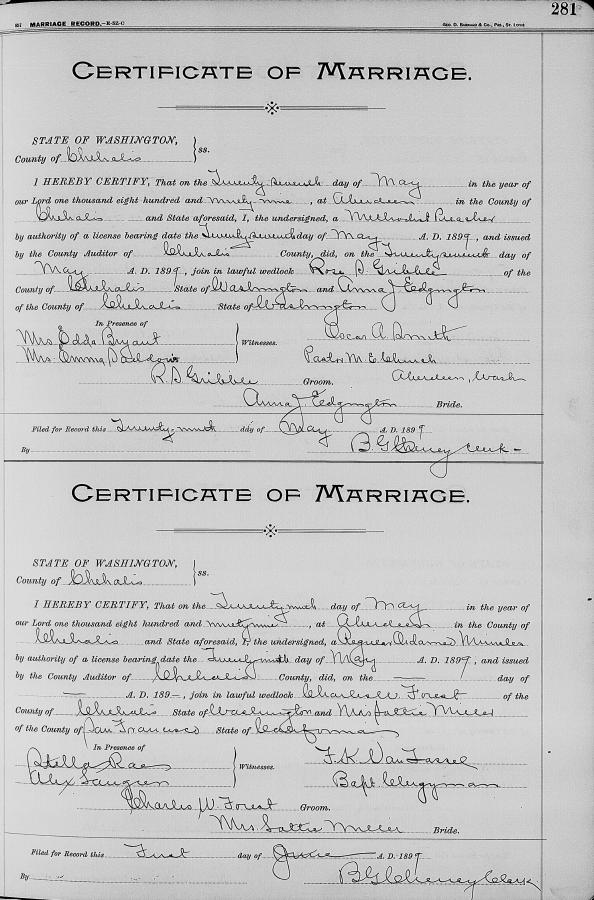 281
257 MARRIAGE RECORD.—R-SZ-C
GEO. D. BARNARD & CO., PRS., ST. LOUIS
CERTIFICATE OF MARRIAGE.
STATE OF WASHINGTON,
County of Chehalis } ss.
I HEREBY CERTIFY, That on the Twenty seventh day of May in the year of
our Lord one thousand eight hundred and ninety-nine, at Aberdeen in the County of
Chehalis and State aforesaid, I, the undersigned, a Methodist Preacher
by authority of a license bearing date the Twenty seventh day of May A. D. 1899, and issued
by the County Auditor of Chehalis County, did, on the Twenty seventh day of
May A. D. 1899, join in lawful wedlock Ross D Gribble of the
County of Chehalis State of Washington and Anna J. Edgington
of the County of Chehalis State of Washington
In Presence of
Mrs Edda Bryant
Mrs. Emma
Witnesses.
Oscar A. Smith
Pastor M. E. Church
Aberdeen, Wash
R D Gribble Groom.
Anna J. Edgington Bride.
Filed for Record this Twenty-ninth day of May A. D. 1899
By B. G. Cheney Clerk
CERTIFICATE OF MARRIAGE.
STATE OF WASHINGTON,
County of Chehalis } ss.
I HEREBY CERTIFY, That on the Twenty ninth day of May in the year of
our Lord one thousand eight hundred and ninety nine, at Aberdeen in the County of
Chehalis and State aforesaid, I, the undersigned, a Regular Ordained Minister
by authority of a license bearing date the Twenty ninth day of May A. D. 1899, and issued
by the County Auditor of Chehalis County, did, on the — day of
— A. D. 189–, join in lawful wedlock Charles W. Forest of the
County of Chehalis State of Washington and Mrs Lottie Miller
of the County of San Francisco State of California
In Presence of
Stella Rae
Alex
Witnesses.
F. K. Van Tassel
Bapt Clergyman
Charles W. Forest Groom.
Mrs Lottie Miller Bride.
Filed for Record this First day of June A. D. 1899
By B G Cheney Clerk